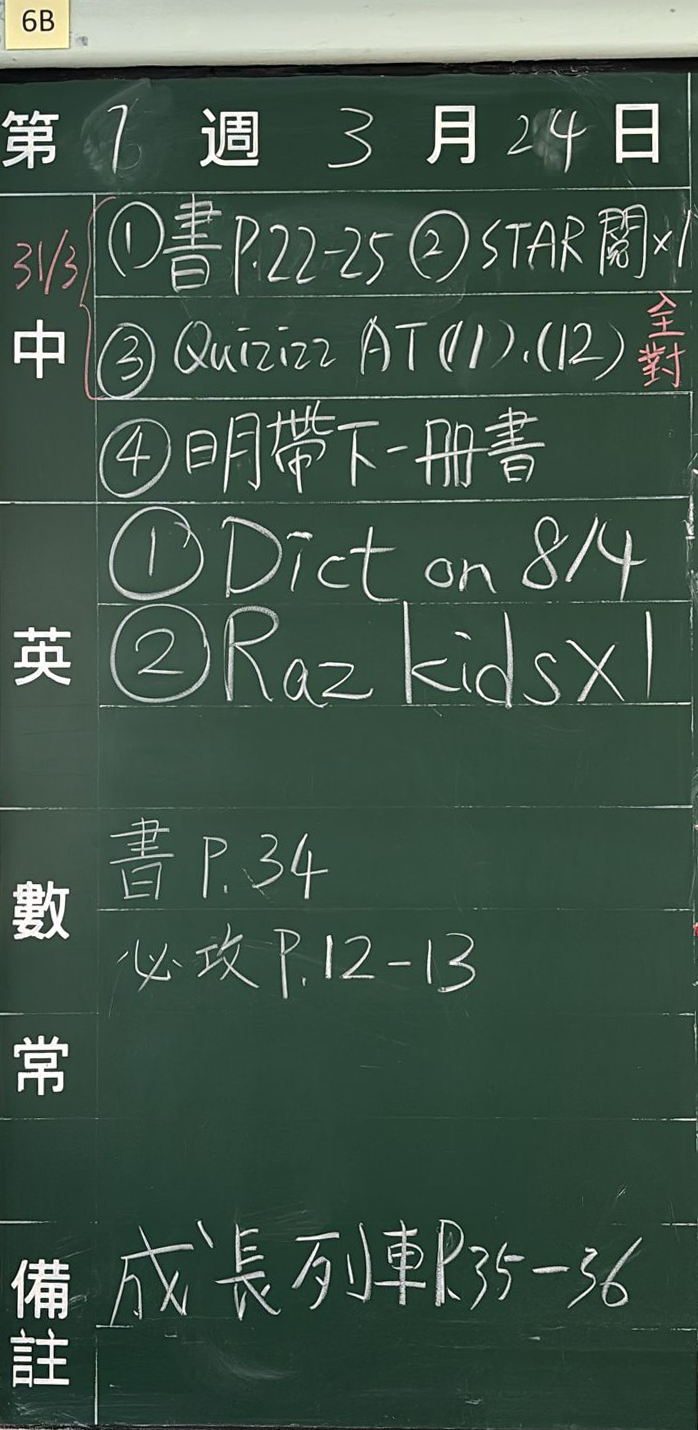 6B
第 7 週 3 月 24 日
中
31/3
① 書 P.22-25 ② STAR 閱×1
③ Quizizz AT (11).(12) 全對
④ 明帶下一冊書
英
① Dict on 8/4
② Raz kids×1
數
書 P.34
必攻 P.12-13
常
備註
成長列車P.35-36